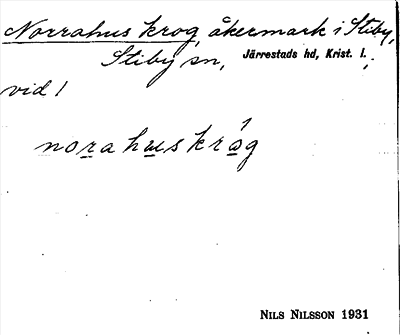 Norrahus krog, åkermark i Stiby,
Stiby sn, Järrestads hd, Krist. l.;
vid 1
norahuskråg
NILS NILSSON 1931